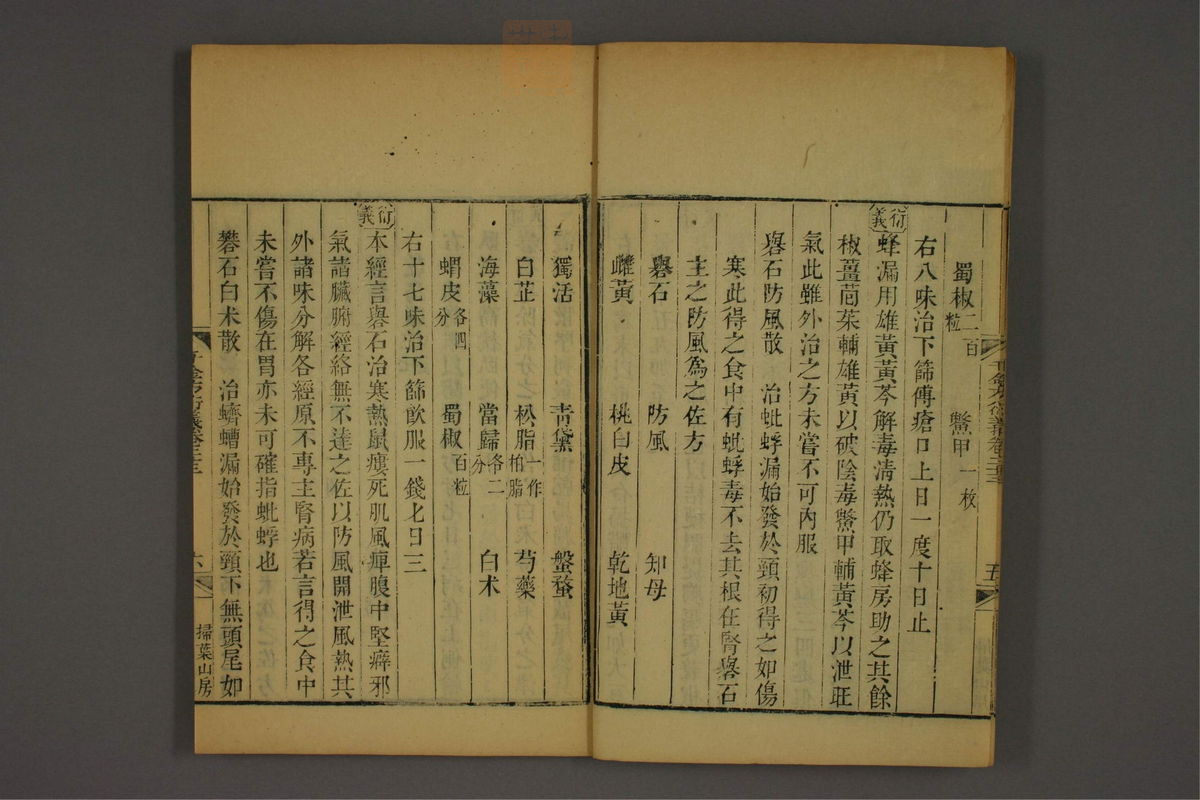 千金方衍義卷二十三 五
蜀椒二百粒 鱉甲一枚
右八味治下篩傅瘡口上日一度十日止
衍義
蜂漏用雄黃黃芩解毒淸熱仍取蜂房助之其餘
椒薑茴茱輔雄黃以破陰毒鱉甲輔黃芩以泄旺
氣此雖外治之方未嘗不可內服
礜石防風散 治蚍蜉漏始發於頸初得之如傷
寒此得之食中有蚍蜉毒不去其根在腎礜石
主之防風爲之佐方
礜石 防風 知母
雌黃 桃白皮 乾地黃
獨活 靑黛 盤蝥
白芷 松脂一作柏脂 芍藥
海藻 當歸各二分 白术
蝟皮各四分 蜀椒百粒
右十七味治下篩飮服一錢匕日三
衍義
本經言礜石治寒熱鼠瘻死肌風痺腹中堅癖邪
氣諸臟腑經絡無不達之佐以防風開泄風熱其
外諸味分解各經原不專主腎病若言得之食中
未嘗不傷在胃亦未可確指蚍蜉也
礬石白术散 治蠐螬漏始發於頸下無頭尾如
六
掃葉山房